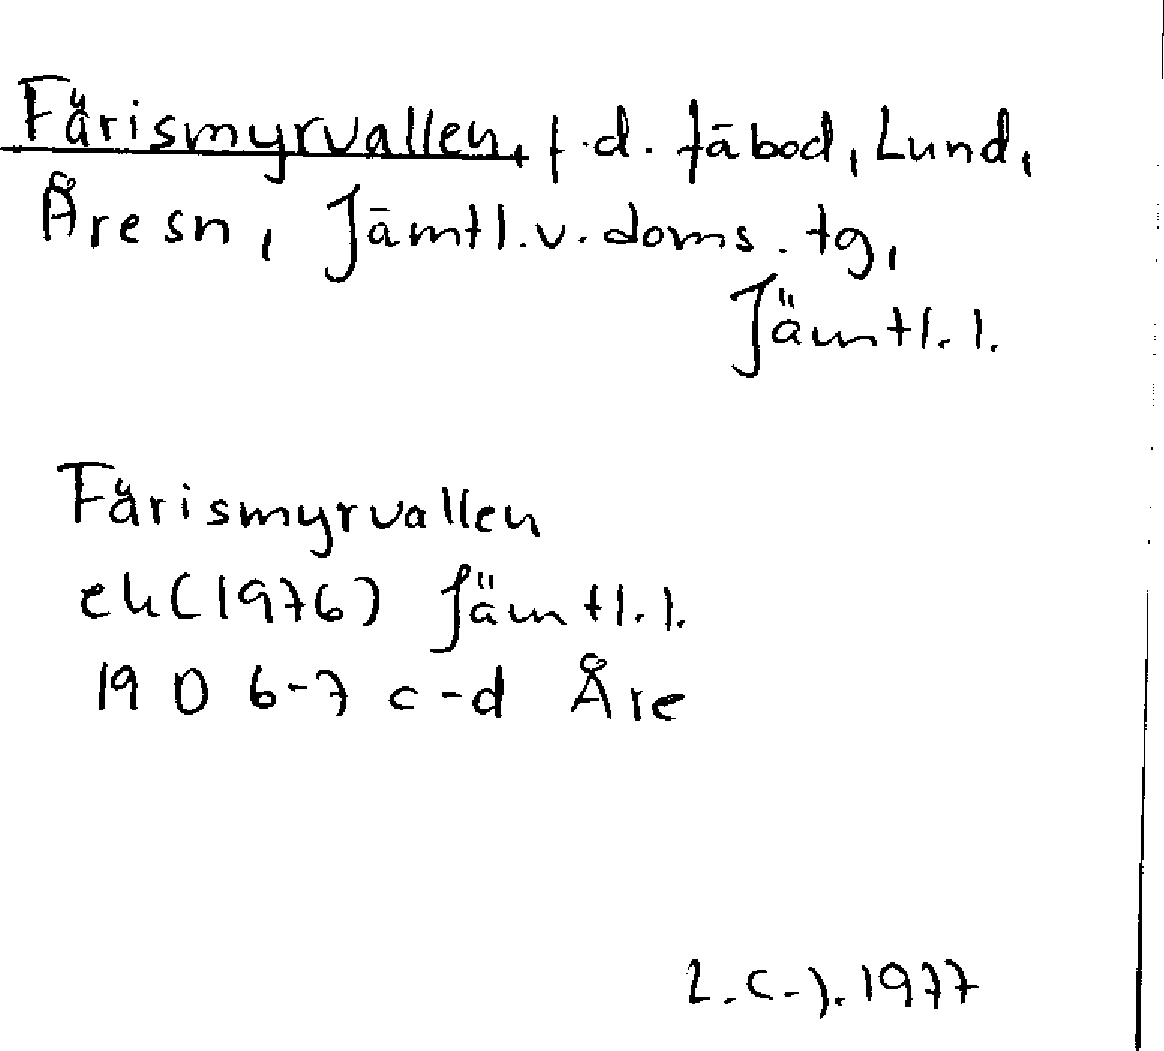 Färismyrvallen, f.d. fäbod, Lund,
Åre sn, Jämtl.v. doms. tg,
Jämtl. l.
Färismyrvallen
ek (1976) Jämtl. l.
19 D 6-7 c-d Åre
L.C-J. 1977